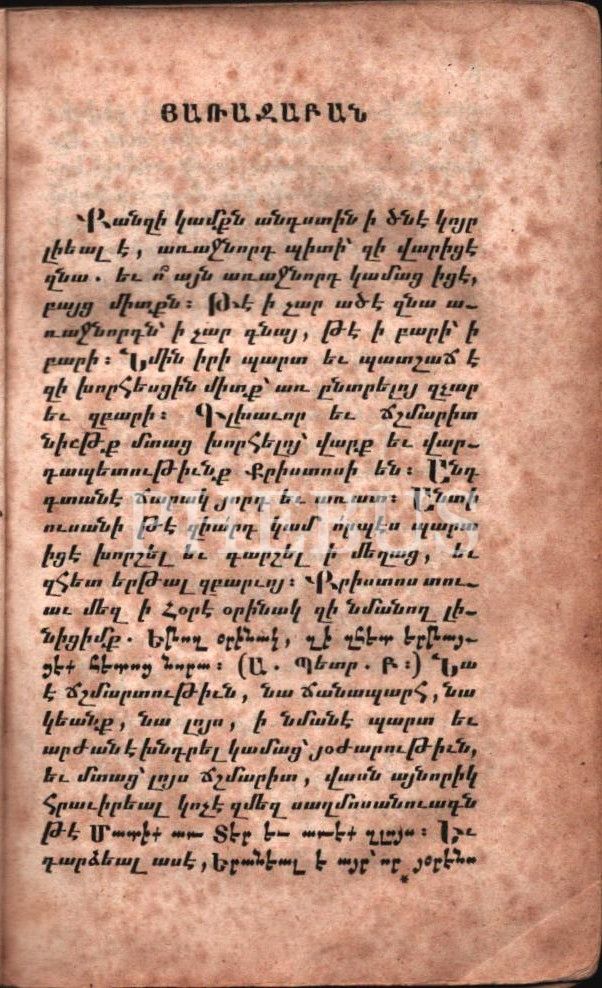 ՅԱՌԱՋԱԲԱՆ
Քանզի կամքն անդստին ի ծնէ կոյր
լիեալ է, առաջնորդ պիտի՝ զի վարիցէ
զնա. եւ ո՞ այն առաջնորդ կամաց իցէ,
բայց միտքն։ Թէ ի չար ածէ զնա ա-
ռաջնորդն՝ ի չար գնայ, թէ ի բարի՝ ի
բարի։ Ումին իրի պարտ եւ պատշաճ է
զի խորհեսցին միտք՝ առ ընտրելոյ զչար
եւ զբարի։ Գլխաւոր եւ ճշմարիտ
նիւթք մտաց խորհելոյ՝ վարք եւ վար-
դապետութիւնք Քրիստոսի են։ Անդ
գտանէ ճարակ յորդ եւ առատ։ Անտի
ուսանի թէ զիարդ կամ որպէս պարտ
իցէ խորշել եւ գարշել ի մեղաց, եւ
զհետ երթալ զբարւոյ։ Քրիստոս տու-
աւ մեզ ի Հօրէ օրինակ զի նմանող լի-
նիցիմք. Եթող օրինակ, զի զհետ երթայ-
ցէք հետոց նորա։ (Ա. Պետր. Բ։) Նա
է ճշմարտութիւն, նա ճանապարհ, նա
կեանք, նա լոյս, ի նմանէ պարտ եւ
արժան է խնդրել կամաց՝ յօժարութիւն,
եւ մտաց՝ լոյս ճշմարիտ, վասն այնորիկ
հրաւիրեալ կոչէ զմեզ սաղմոսանուագն
թէ Մատիք առ Տէր եւ առէք զլոյս։ Եւ
դարձեալ ասէ, Երանեալ է այր՝ որ յօրէնս
PHEBUS